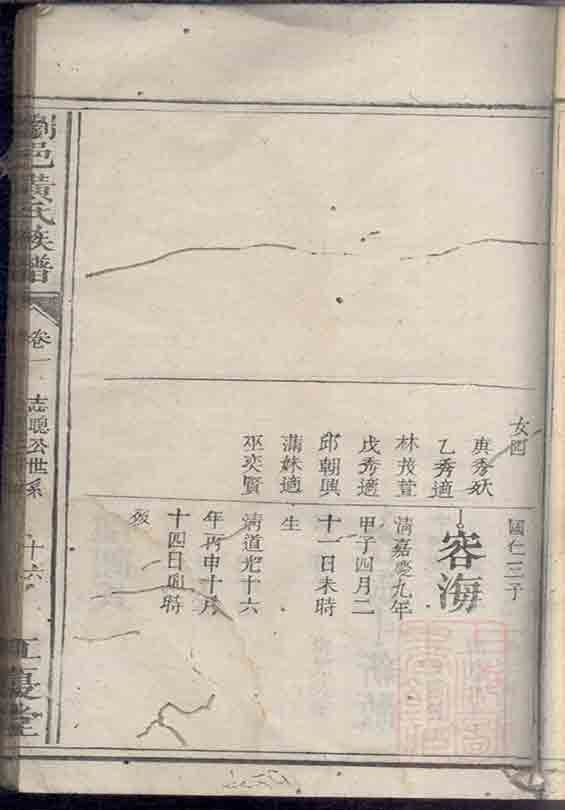 女四
庚秀妖
乙秀適
林茂萱
戊秀適
邱朝興
滿妹適
巫奕賢
國仁三子
容海
清嘉慶九年
甲子四月二
十一日未時
生
清道光十六
年丙申十月
十四日酉時
歿
瀏邑黃氏族譜
卷一
志聰公世系
十六
江夏堂